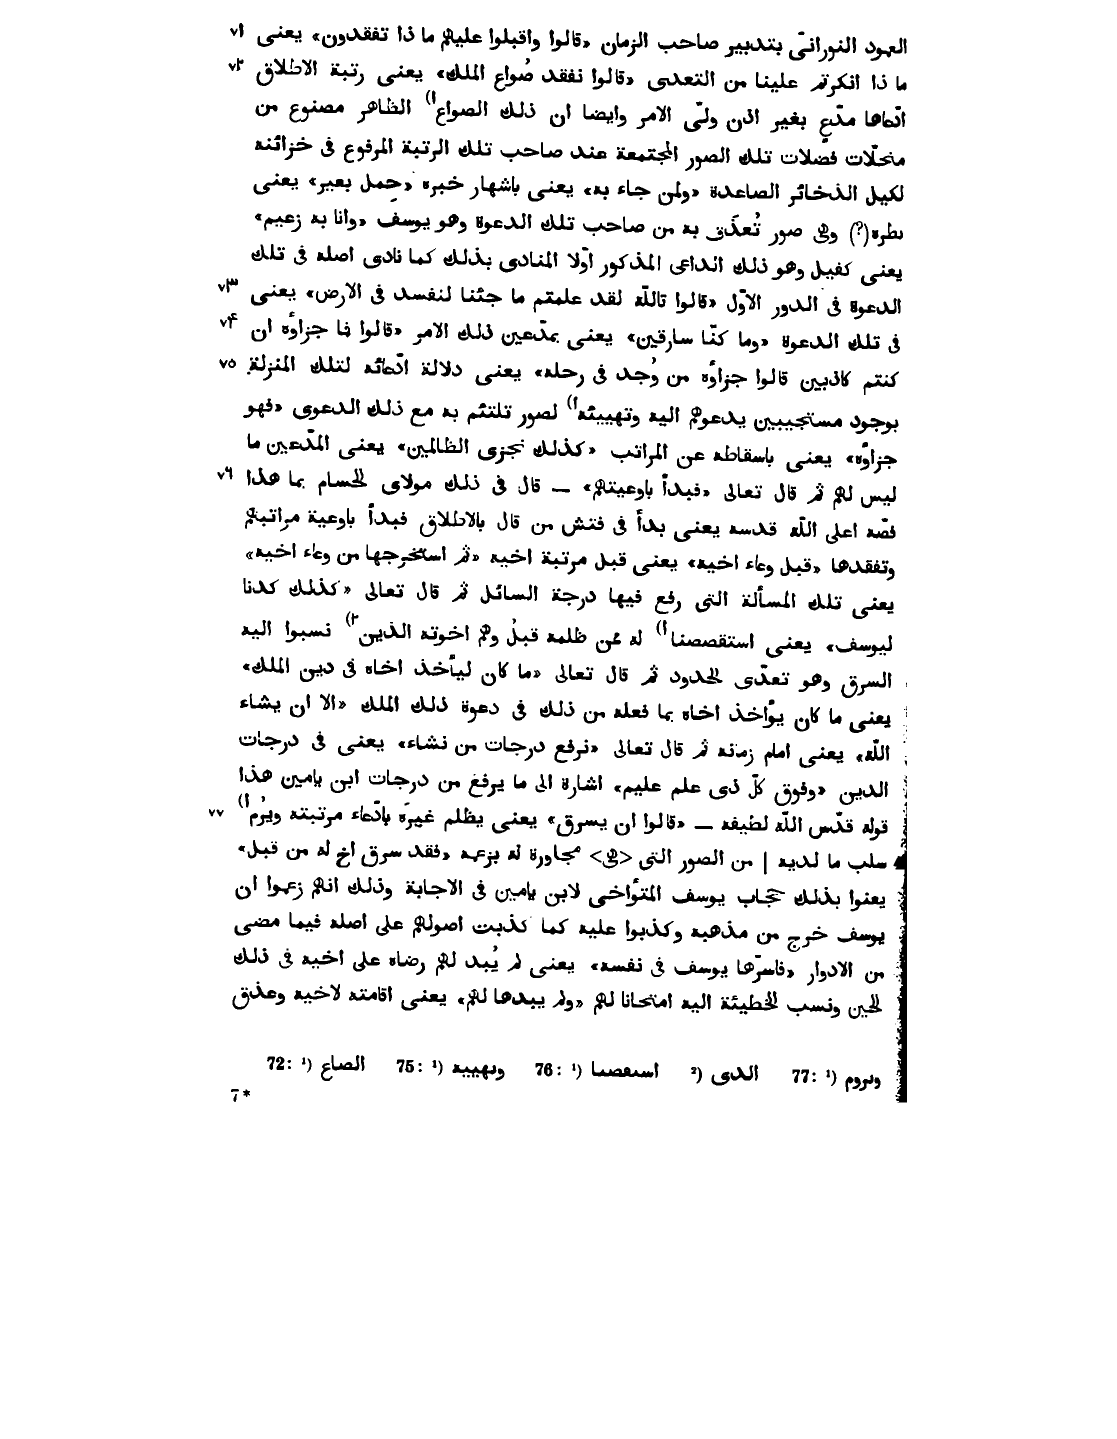 العمود النورانىّ بتدبير صاحب الزمان «قالوا واقبلوا عليهم ما ذا تفقدون» يعنى ٧١
ما ذا انكرتم علينا من التعدى «قالوا نفقد صُواع الملك» يعنى رتبة الاطلاق ٧٢
ادّعاها مدّعٍ بغير اذن ولىّ الامر وايضا ان ذلك الصواع¹) الظاهر مصنوع من
متحلّلات فضلات تلك الصور المجتمعة عند صاحب تلك الرتبة المرفوع فى خزائنه
لكيل الذخائر الصاعدة «ولمن جاء به» يعنى باشهار خبره «حِمل بعير» يعنى
بطره(؟) وهى صور تُعذَق به من صاحب تلك الدعوة وهو يوسف «وانا به زعيم»
يعنى كفيل وهو ذلك الداعى المذكور اوّلا المنادى بذلك كما نادى اصله فى تلك
الدعوة فى الدور الاوّل «قالوا تاللّه لقد علمتم ما جئنا لنفسد فى الارض» يعنى ٧٣
فى تلك الدعوة «وما كنّا سارقين» يعنى بمدّعين ذلك الامر «قالوا فما جزاؤه ان ٧٤
كنتم كاذبين قالوا جزاؤه من وُجد فى رحله» يعنى دلالة ادّعائه لتلك المنزلة ٧٥
بوجود مستجيبين يدعوهم اليه وتهييئه¹) لصور تلتئم به مع ذلك الدعوى «فهو
جزاؤه» يعنى باسقاطه عن المراتب «كذلك نجزى الظالمين» يعنى المدّعين ما
ليس لهم ثم قال تعالى «فبدأ باوعيتهم» — قال فى ذلك مولاى الحسام بما هذا ٧٦
فصّه اعلى اللّه قدسه يعنى بدأ فى فتش من قال بالاطلاق فبدأ باوعية مراتبهم
وتفقدها «قبل وعاء اخيه» يعنى قبل مرتبة اخيه «ثم استخرجها من وعاء اخيه»
يعنى تلك المسألة التى رفع فيها درجة السائل ثم قال تعالى «كذلك كدنا
ليوسف» يعنى استقصصنا¹) له ممن ظلمه قبلُ وهم اخوته الذين²) نسبوا اليه
السرق وهو تعدّى الحدود ثم قال تعالى «ما كان ليأخذ اخاه فى دين الملك»
يعنى ما كان يؤاخذ اخاه بما فعله من ذلك فى دعوة ذلك الملك «الا ان يشاء
اللّه» يعنى امام زمانه ثم قال تعالى «نرفع درجات من نشاء» يعنى فى درجات
الدين «وفوق كلّ ذى علم عليم» اشارة الى ما يرفع من درجات ابن يامين هذا
قوله قدّس اللّه لطيفه — «قالوا ان يسرق» يعنى يظلم غيرَه بادّعاء مرتبته ويرُم¹) ٧٧
سلب ما لديه | من الصور التى <هى> مجاورة له بزعمه «فقد سرق اخ له من قبل»
يعنوا بذلك حجاب يوسف المتؤاخى لابن يامين فى الاجابة وذلك انهم زعموا ان
يوسف خرج من مذهبه وكذبوا عليه كما كذبت اصولهم على اصله فيما مضى
من الادوار «فاسرّها يوسف فى نفسه» يعنى لم يُبد لهم رضاه على اخيه فى ذلك
الحين ونسب الخطيئة اليه امتحانا لهم «ولم يبدها لهم» يعنى اقامته لاخيه وعذق
72: ¹) الصاع 75: ¹) وىهىىه 76: ¹) اسىعصىىا ²) الدى 77: ¹) وىروم
7*